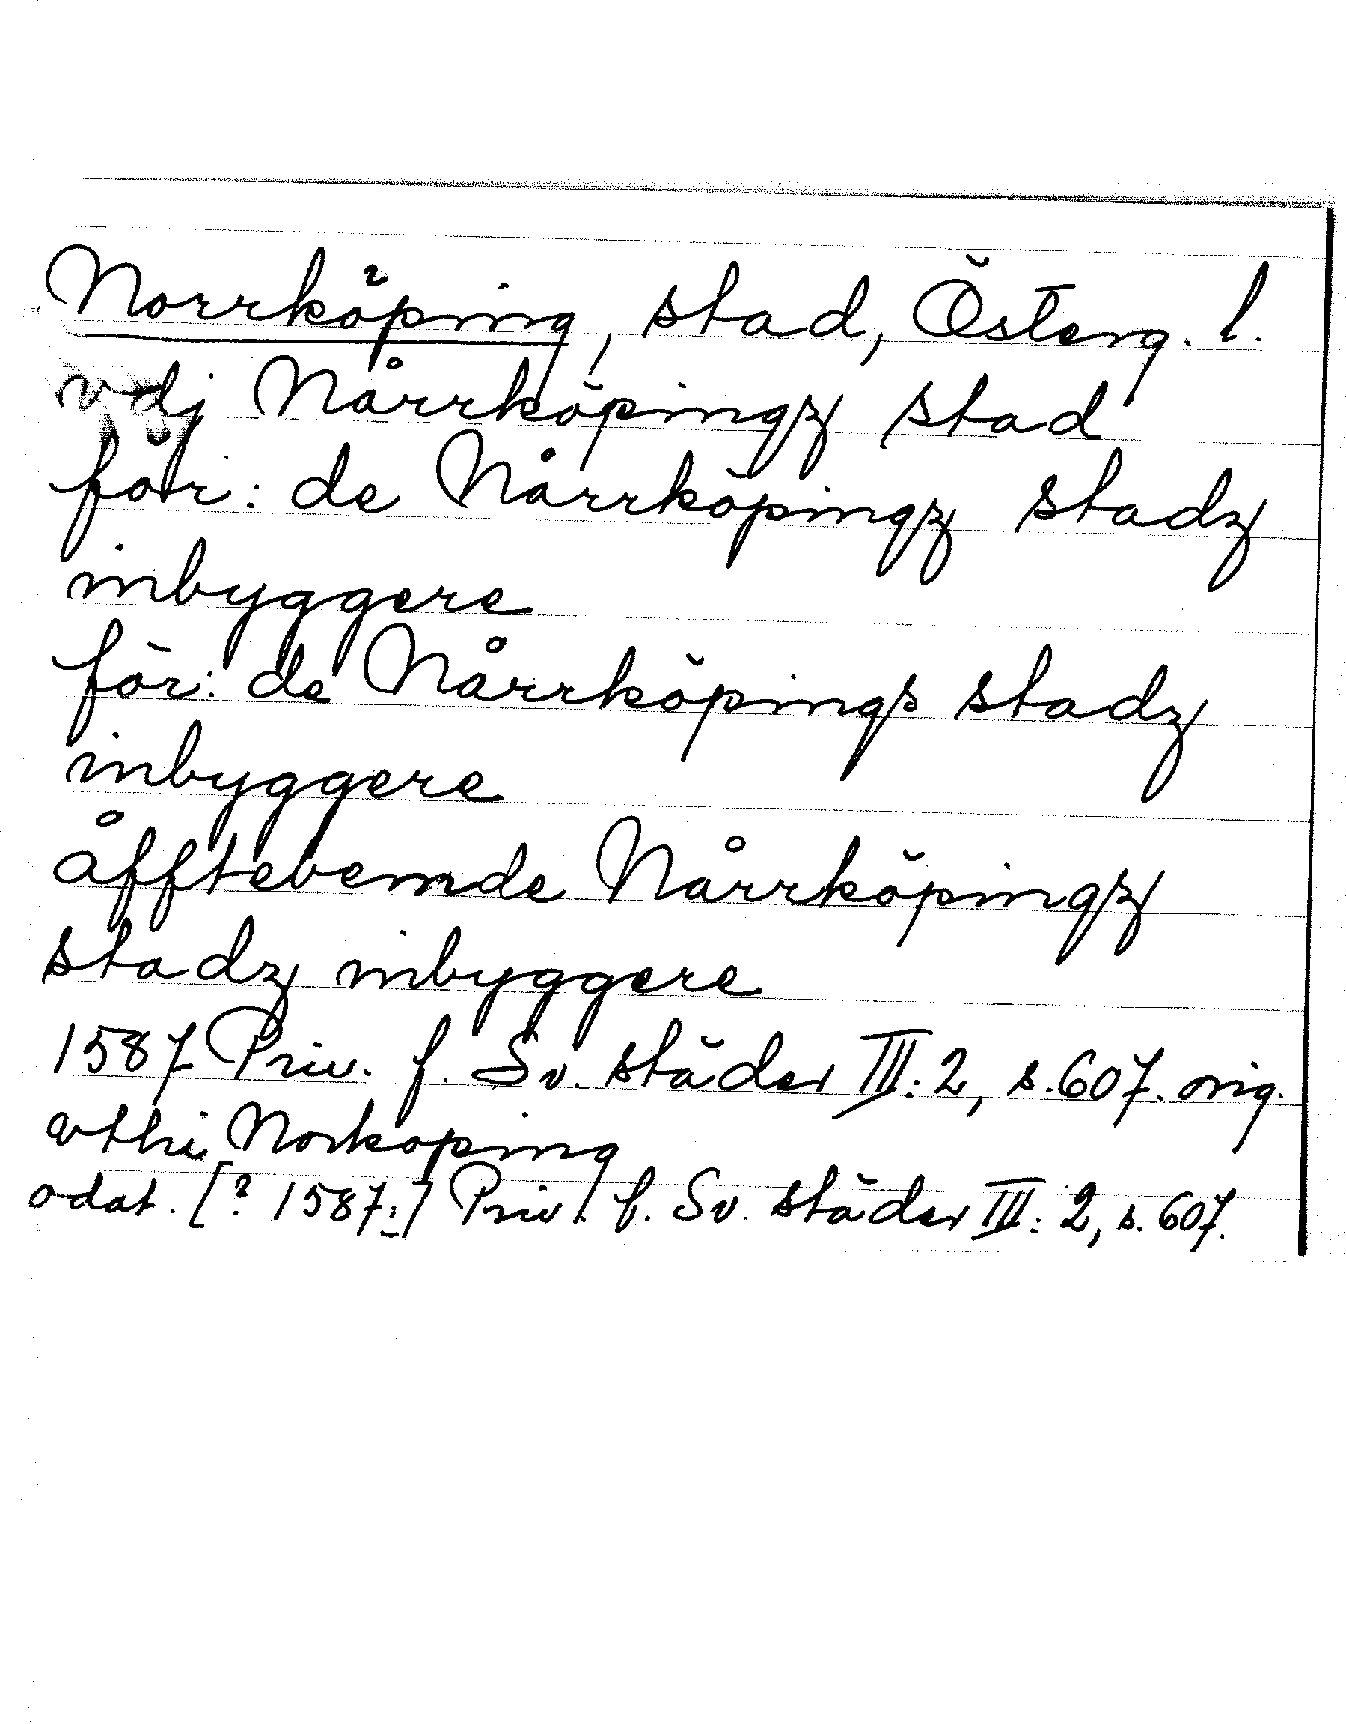 Norrköping, stad, Österg. l.
vdj Nårrköpingz stad
för: de Nårrköpingz stadz
inbyggere
för: de Nårrköpings stadz
inbyggere
åfftebemde Nårrköpingz
stadz inbyggere
1587 Priv. f. Sv. städer III:2, s.607. orig.
vthi Norkoping
odat. [? 1587:] Priv. f. Sv. städer III:2, s.607.